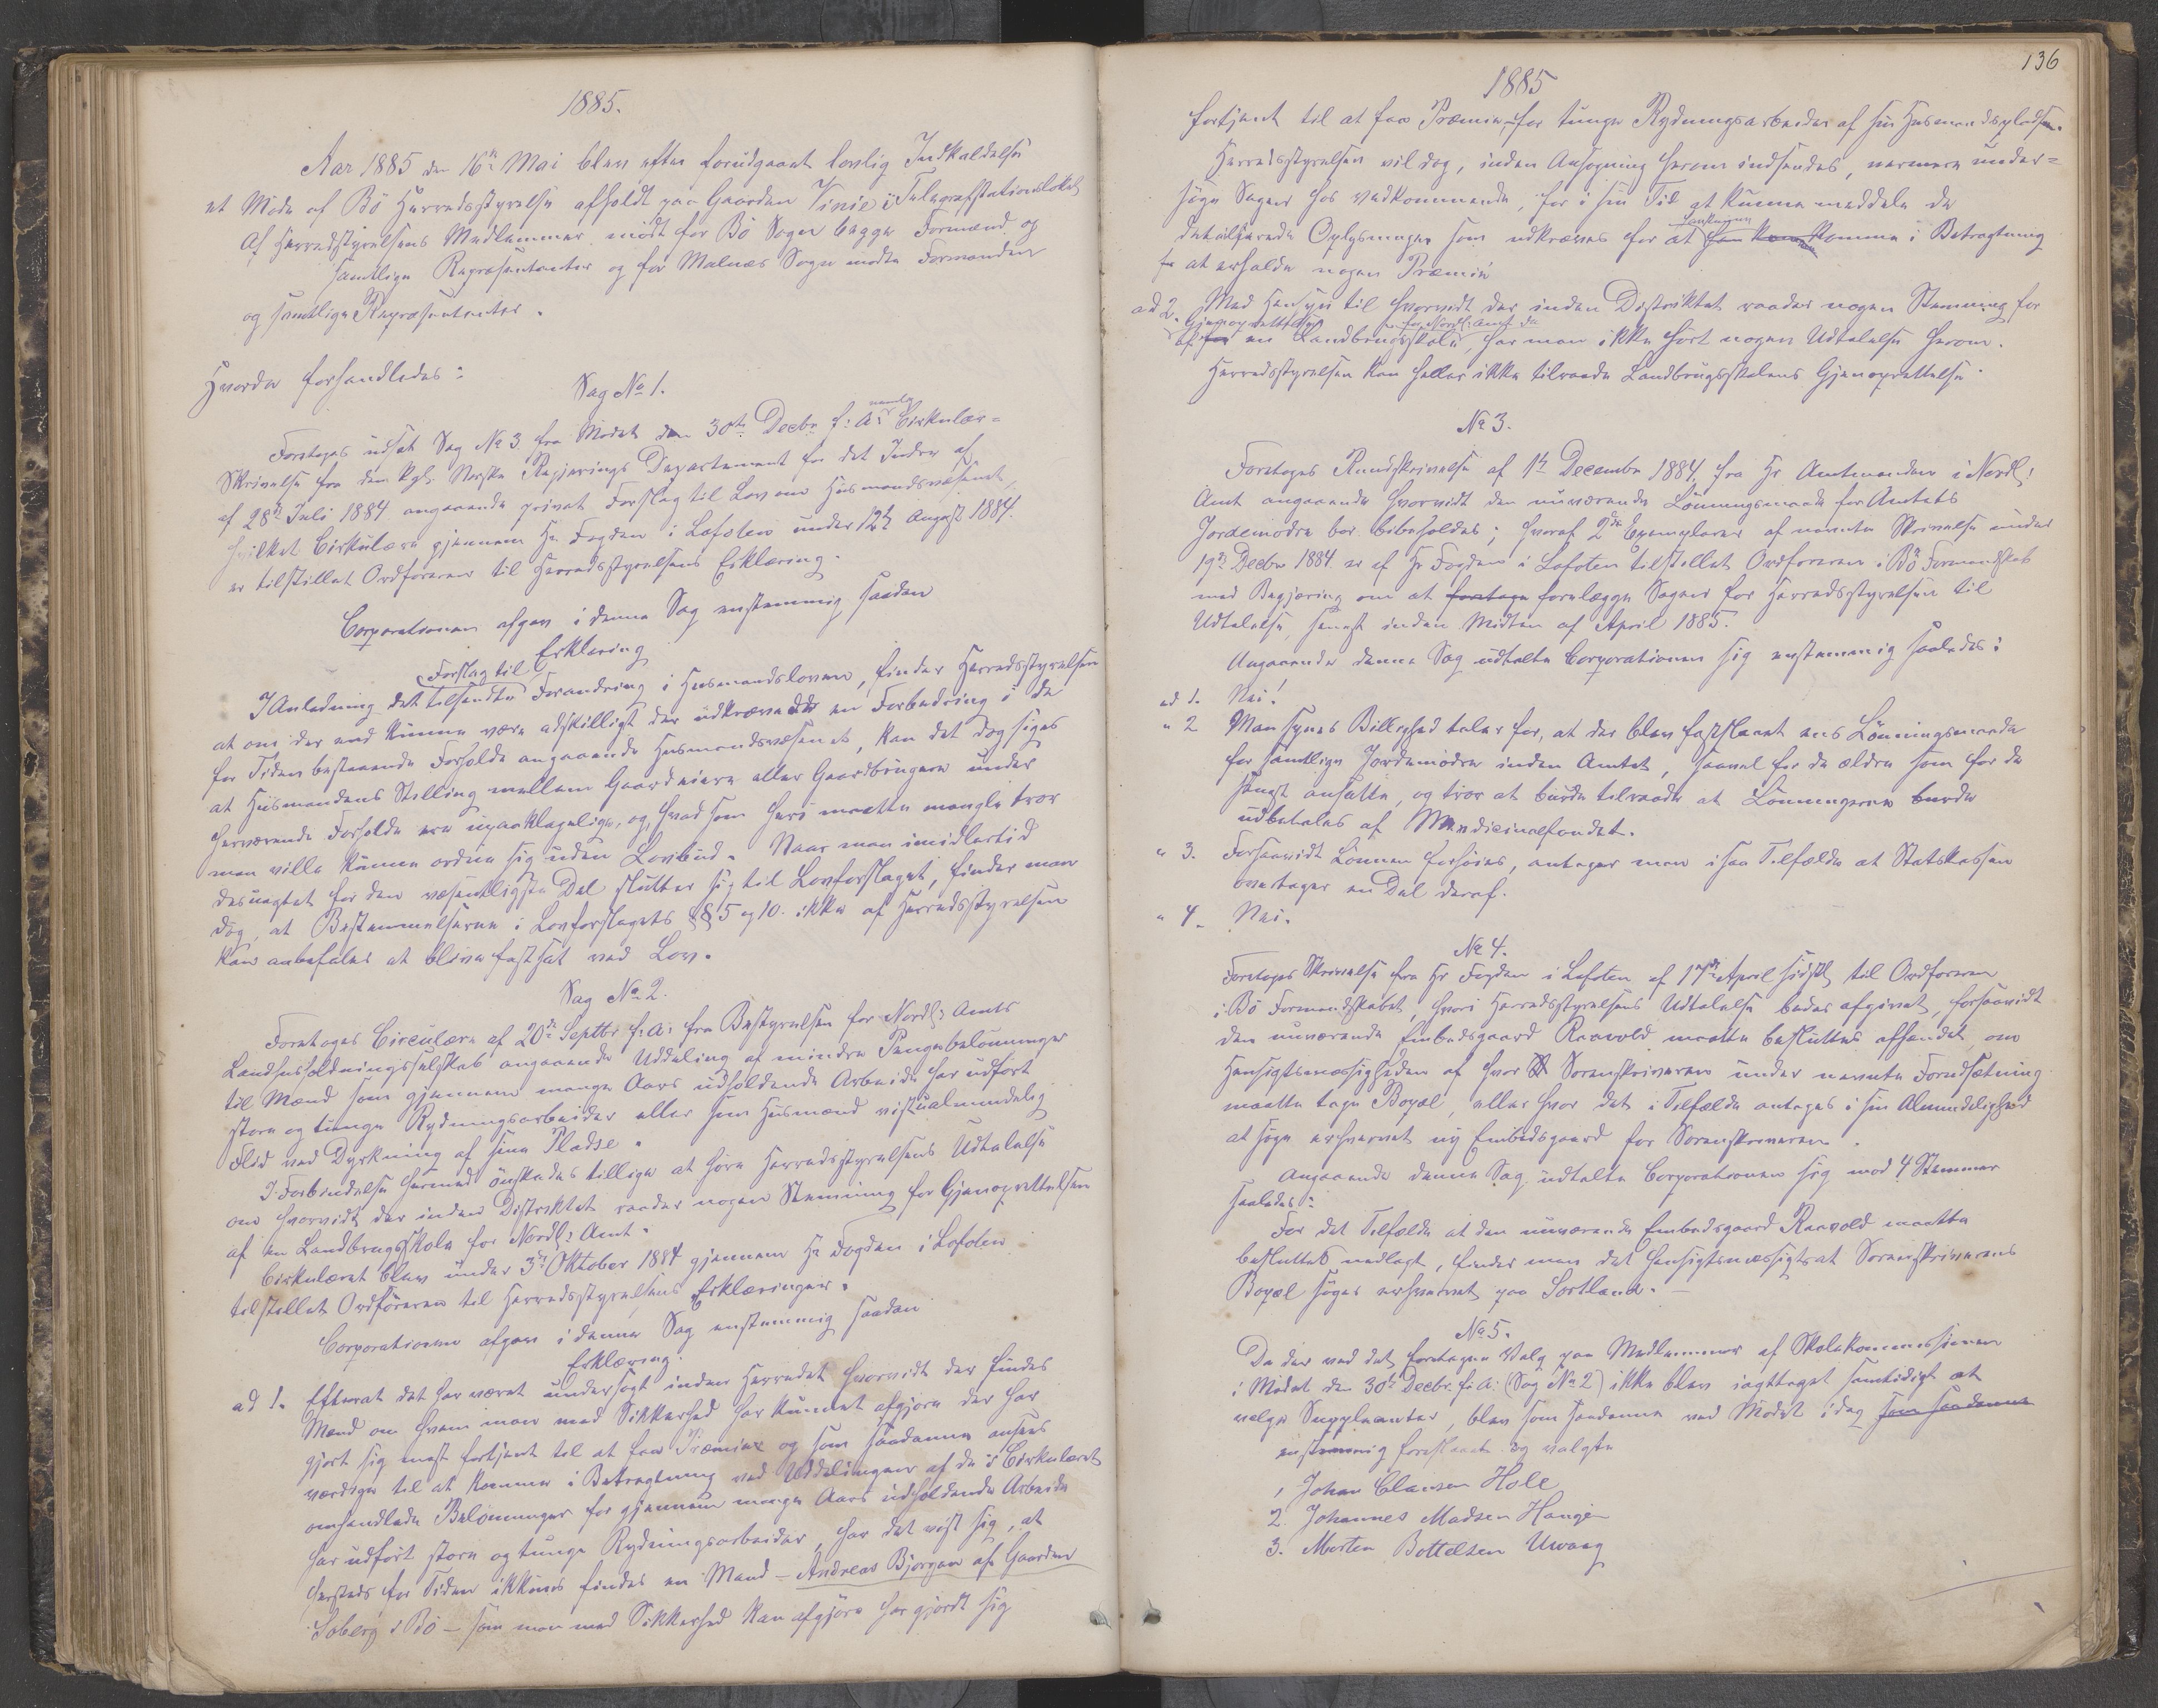 1885.
Aar 1885 den 16de Mai blev efter forudgaaet lovlig Indkaldelse
et Møde af Bö Herredsstyrelse afholdt paa Gaarden Vinie i Telegrafstationslokalet
Af Herredstyrelsens Medlemmer mödt for Bö Sogn begge Formænd og
samtlige Repræsentanter og for Malnæs Sogn mødte Formanden
og samtlige Repræsentanter.
Hvorda forhandledes:
Sag No 1.
Foretoges udsat Sag No 3 fra Mødet den 30te Decbr f: A: nemlig Cirkulær=
Skrivelse fra den kgl. Norske Regjerings Departement for det Indre af
af 28de Juli 1884 angaaende privat Forslag til Lov om Husmandsvæsenet,
hvilket Cirkulære gjennem Hr Fogden i Lofoten under 12te August 1884.
er tilstillet Ordføreren til Herredsstyrelsens Erklæring.
Corporationen afgav i denne Sag enstemmig saadan
Erklæring
I Anledning det tilsendte Forslag til Forandring i Husmandsloven, finder Herredsstyrelsen
at om der end kunne være adskilligt der udkrævede en Forbedring i de
for Tiden bestaaende Forholde angaaende Husmandsvæsenet, kan det dog siges
at Husmandens Stilling mellem Gaardeiere eller Gaardbrugere under
herværende Forholde ere upaaklagelige, og hvad som heri maatte mangle tror
man ville kunne ordne sig uden Lovbud. Naar man imidlertid
desuagtet for den væsentligste Del slutter sig til Lovforslaget, finder man
dog, at Bestemmelserne i Lovforslagets §§ 5 og 10. ikke af Herredsstyrelsen
kan anbefales at blive fastsat ved Lov.
Sag No 2.
Foretoges Circulære af 20de Septbr f: A: fra Bestyrelsen for Nordl: Amts
Landhusholdningsselskab angaaende Uddeling af mindre Pengebelønninger
til Mænd som gjennem mange Aars udholdende Arbeide har udført
store og tunge Rydningsarbeider eller som Husmænd vist ualmindelig
Flid ved Dyrkning af sine Pladse.
I Forbindelse hermed önskedes tillige at höre Herredsstyrelsens Udtalelse
om hvorvidt der inden Distriktet raader nogen Stemning for Gjenoprettelsen
af en Landbrugsskole for Nordl: Amt.
Cirkulæret blev under 3de Oktober 1884 gjennem Hr Fogden i Lofoten
tilstillet Ordføreren til Herredsstyrelsens Erklæringer.
Corporationen afgav i denne Sag enstemmig saadan
Erklæring.
ad 1. Efterat det har været undersøgt inden Herredet hvorvidt der findes
Mænd om hvem man med Sikkerhed har kunnet afgjøre der har
gjort sig mest fortjent til at faa Præmier og som saadanne ansees
værdige til at komme i Betragtning ved Uddelingen af de i Cirkulæret
omhandlede Belønninger for gjennem mange Aars udholdende Arbeide
har udført store og tunge Rydningsarbeider, har det vist sig, at
hersteds for Tiden ikkuns findes en Mand – Andreas Bjorgan af Gaarden
Soberg i Bö – som man med Sikkerhed kan afgjöre har gjordt sig
136
1885
fortjent til at faa Præmie for tunge Rydningsarbeider af sin Husmandspladsen.
Herredsstyrelsen vil dog, inden Ansøgning herom indsendes, nærmere under=
søge Sagen hos vedkommende, for i sin Tid at kunne meddele de
detailjerede Oplysninger som udkræves for at komme i Betragtning
for at erholde nogen Præmie
ad 2. Med Hensyn til hvorvidt der inden Distriktet raader nogen Stemning for
Gjenoprettelse af en Landbrugsskole for Nordl: Amt da, har man ikke hört nogen Udtalelse herom.
Herredsstyrelsen kan heller ikke tilraade Landbrugsskolens Gjenoprettelse.
No 3.
Foretoges Rundskrivelse af 1te December 1884, fra Hr Amtmanden i Nordl:
Amt angaaende hvorvidt den nuværende Lönningsmaade for Amtets
Jordemodre bør bibeholdes; hvoraf 2de Exemplarer af nævnte Skrivelse under
19de Decbr 1884 er af Hr Fogden i Lofoten tilstillet Ordføreren i Bö Formandskab
med Begjæring om at foretage forelægge Sagen for Herredsstyrelsen til
Udtalelse, senest inden Midten af April 1885.
Angaaende denne Sag udtalte Corporationen sig enstemmig saaledes:
ad 1. Nei!
" 2 Man synes Billighed taler for, at der blev fastslaaet ens Lönningsmaade
for samtlige Jordemödre inden Amtet, saavel for de ældre som for de
senest ansatte, og tror at burde tilraade at Lönningerne burde
udbetales af Medicinalfondet.
" 3. Forsaavidt Lönnen forhöies, antager man i saa Tilfælde at Statskassen
overtager en Del deraf.
" 4. Nei.
No 4.
Foretoges Skrivelse fra Hr Fogden i Lofoten af 17de April sidstl til Ordføreren
i Bö Formandskabet, hvori Herredsstyrelsens Udtalelse bedes afgivet, forsaavidt
den nuværende Embedsgaard Raavold maatte besluttes afhændet, om
Hensigtsmæssigheden af hvor Sorenskriveren under nævnte Forudsætning
maatte tage Bopæl, eller hvor det i Tilfælde antages i sin Almindelighed
at søge erhvervet ny Embedsgaard for Sorenskriveren.
Angaaende denne Sag udtalte Corporationen sig mod 4 Stemmer
saaledes:
For det Tilfælde at den nuværende Embedsgaard Raavold maatte
besluttes nedlagt, finder man det hensigtsmæssigts at Sorenskriverens
Bopæl søges erhvervet paa Sortland. –
No 5.
Da der ved det foretagne Valg paa Medlemmer af Skolekommissionen
i Mødet den 30te Decbr f: A: (Sag No 2) ikke blev iagttaget samtidigt at
vælge Suppleanter, blev som saadanne ved Mödet idag som saadanne
enstemmig foreslaaet og valgte
1, Johan Clausen Holle
2. Johannes Madsen Haugen
3. Morten Bottelsen Uvaag